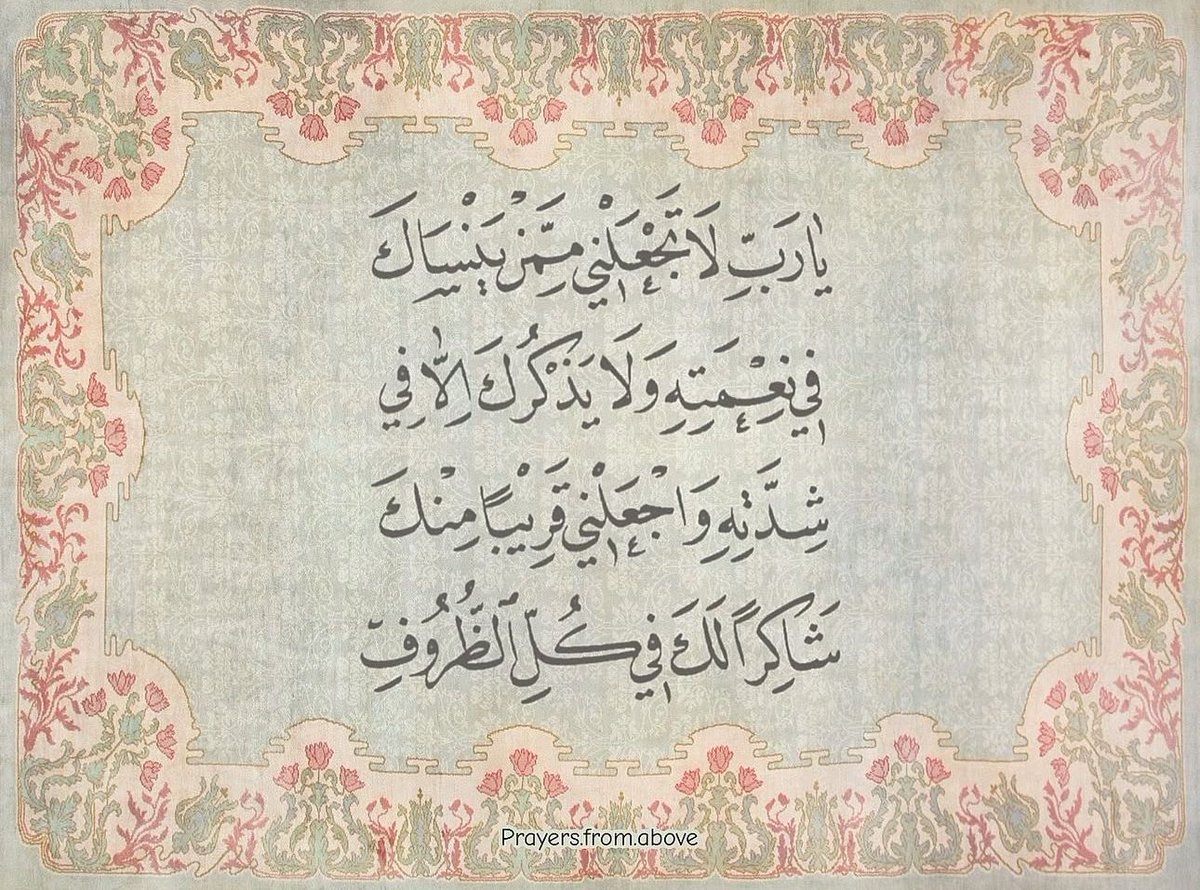 يَا رَبِّ لَا تَجْعَلْنِي مِمَّنْ يَنْسَاكَ
فِي نِعْمَتِهِ وَلَا يَذْكُرُكَ إِلَّا فِي
شِدَّتِهِ وَاجْعَلْنِي قَرِيْبًا مِنْكَ
شَاكِرًا لَكَ فِي كُلِّ ٱلظُّرُوفِ
Prayers.from.above